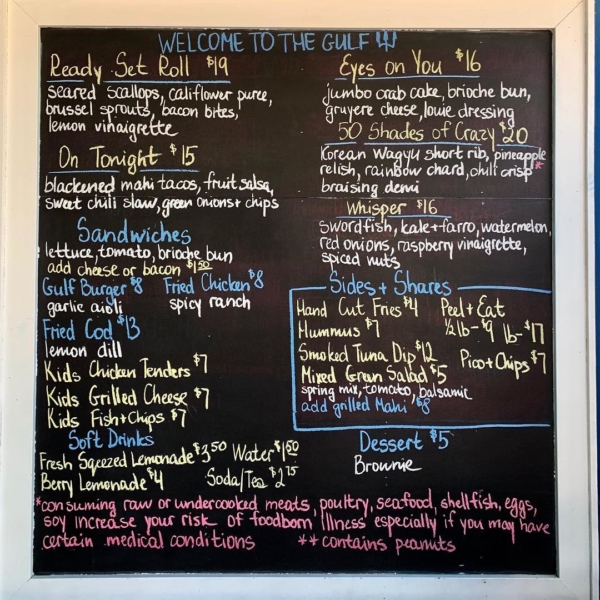 WELCOME TO THE GULF
Ready Set Roll $19
seared scallops, califlower puree,
brussel sprouts, bacon bites,
lemon vinaigrette
On Tonight $15
blackened mahi tacos, fruit salsa,
sweet chili slaw, green onions + chips
Sandwiches
lettuce, tomato, brioche bun
add cheese or bacon $1.50
Gulf Burger $8 Fried Chicken $8
garlic aioli spicy ranch
Fried Cod $13
lemon dill
Kids Chicken Tenders $7
Kids Grilled Cheese $7
Kids Fish + Chips $7
Soft Drinks
Fresh Sqeezed Lemonade $3.50 Water $1.50
Berry Lemonade $4 Soda/Tea $2.75
Eyes on You $16
jumbo crab cake, brioche bun,
gruyere cheese, louie dressing
50 Shades of Crazy $20
Korean Wagyu short rib, pineapple
relish, rainbow chard, chili crisp*
braising demi
Whisper $16
swordfish, kale + farro, watermelon,
red onions, raspberry vinaigrette,
spiced nuts
Sides + Shares
Hand Cut Fries $4 Peel + Eat
Hummus $7 1/2 lb - $9 lb - $17
Smoked Tuna Dip $12 Pico + Chips $7
Mixed Green Salad $5
spring mix, tomato, balsamic
add grilled Mahi $8
Dessert $5
Brownie
*consuming raw or undercooked meats, poultry, seafood, shellfish, eggs,
soy increase your risk of foodborn illness especially if you may have
certain medical conditions ** contains peanuts